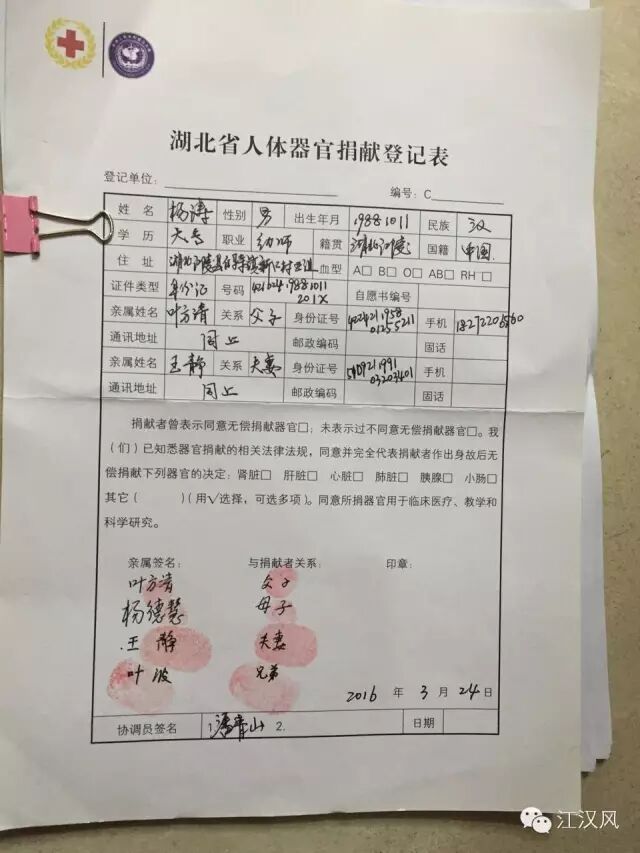 湖北省人体器官捐献登记表
登记单位： 编号：C
姓 名 杨涛 性别 男 出生年月 19881011 民族 汉
学 历 大专 职业 幼师 籍贯 湖北江陵 国籍 中国
住 址 湖北江陵县 血型 A□ B□ O□ AB□ RH□
证件类型 身份证 号码 42102419881011201X 自愿书编号
亲属姓名 叶方清 关系 父子 身份证号 手机
通讯地址 同上 邮政编码 固话
亲属姓名 王静 关系 夫妻 身份证号 手机
通讯地址 同上 邮政编码 固话
捐献者曾表示同意无偿捐献器官□；未表示过不同意无偿捐献器官□。我
（们）已知悉器官捐献的相关法律法规，同意并完全代表捐献者作出身故后无
偿捐献下列器官的决定：肾脏□ 肝脏□ 心脏□ 肺脏□ 胰腺□ 小肠□
其它（ ）（用√选择，可选多项）。同意所捐器官用于临床医疗、教学和
科学研究。
亲属签名： 与捐献者关系： 印章：
叶方清 父子
杨德慧 母子
王静 夫妻
叶波 兄弟
2016 年 3 月 24 日
协调员签名 1. 2. 日期
江汉风